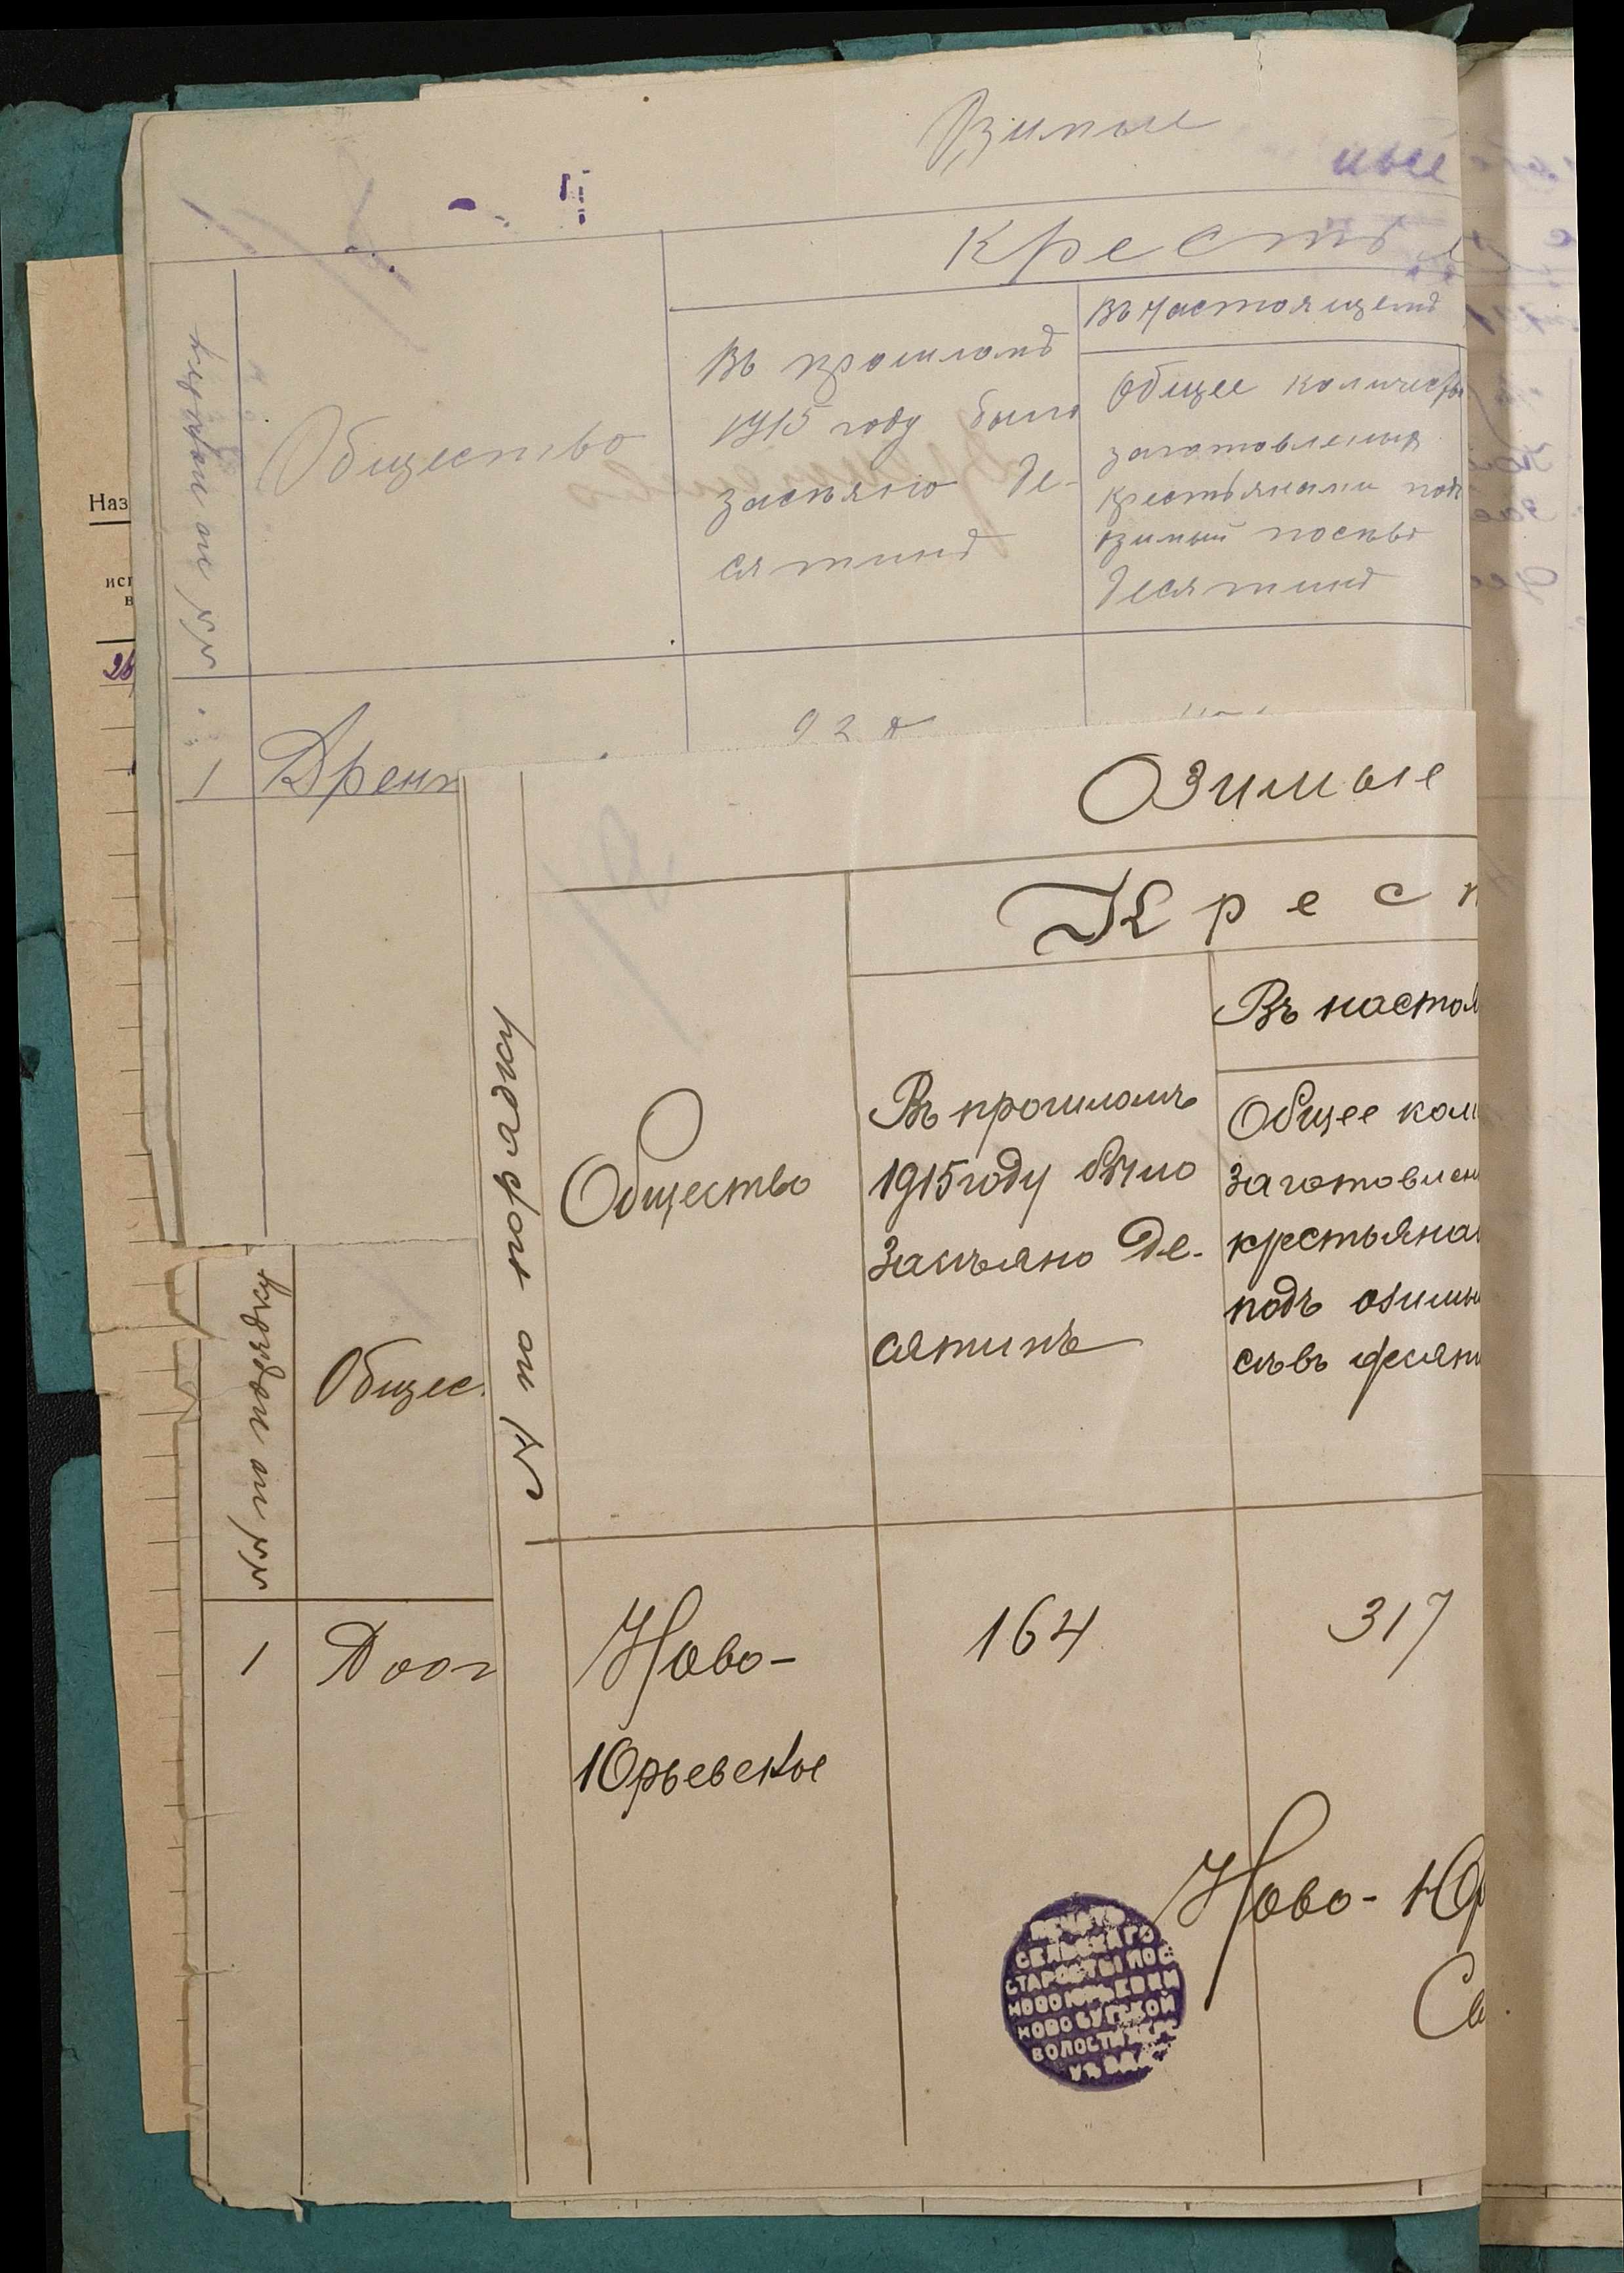 Озимые
ные
Крестья
№ по порядку
Общество
Въ прошломъ
1915 году было
засѣяно де-
сятинъ
Въ настоящемъ
Общее количество
заготовления
крестьянами подъ
озимый посѣвъ
десятинъ
1
92
Наз
исп
в
26
Озимые
Крест
№ по порядку
Общество
Въ прошломъ
1915 году было
засѣяно де-
сятинъ
Въ настоя
Общее коли
заготовлен
крестьянам
подъ озимы
сѣвъ десяти
№ по порядку
Общес
1
Ново-
Юрьевское
164
317
Ново-Юр
Се
ПЕЧАТЬ
СЕЛЬСКАГО
СТАРОСТЫ ПОС
НОВОЮРЬЕВКИ
НОВОБУГСКОЙ
ВОЛОСТИ ХЕРС
УѢЗДА